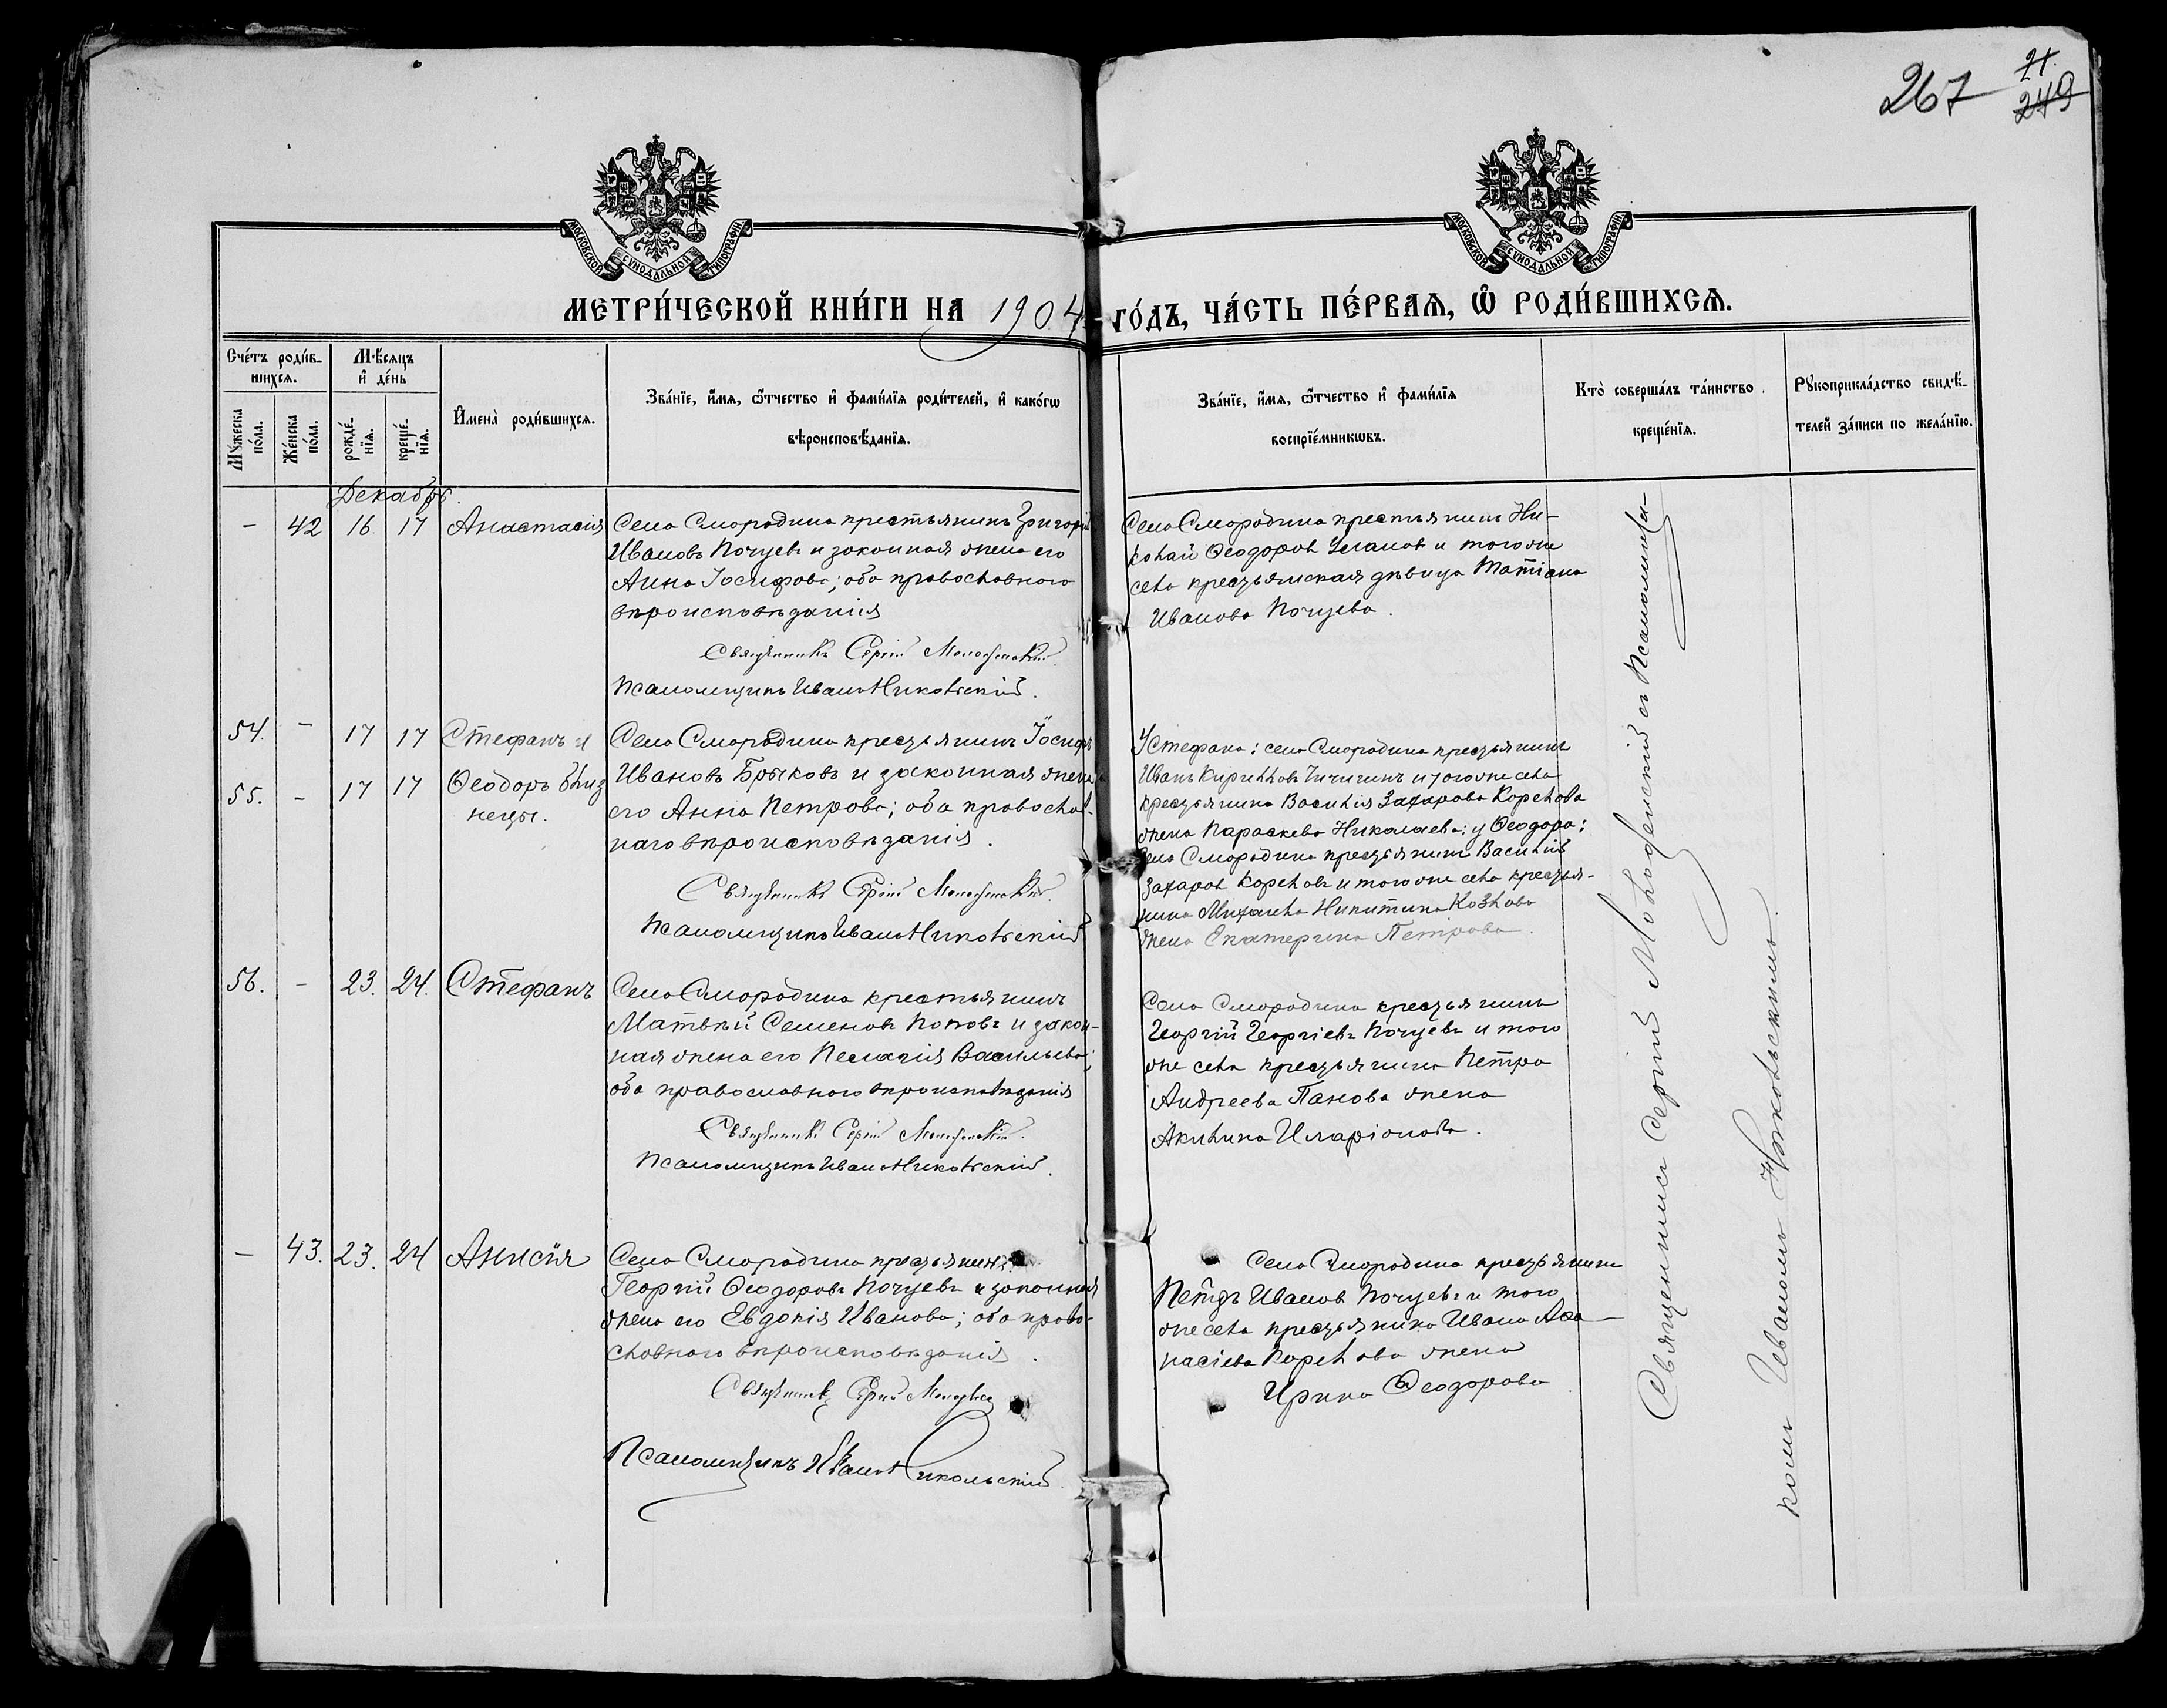 267
21.
249
МОСКОВСКОЙ СѴНОДАЛЬНОЙ ТИПОГРАФІИ
МОСКОВСКОЙ СѴНОДАЛЬНОЙ ТИПОГРАФІИ
МЕТРИ́ЧЕСКОЙ КНИ́ГИ НА 1904 ГО́ДЪ, ЧА́СТЬ ПЕ́РВАѦ, Ѽ РОДИ́ВШИХСѦ.
Сче́тъ роди́в-
шихсѧ.
Мѣ́сяцъ
и҆ де́нь
Мꙋ́жеска
по́ла.
Же́нска
по́ла.
рожде́-
нїѧ.
креще́-
нїѧ.
И҆мена̀ роди́вшихсѧ.
Зва́нїе, и҆́мѧ, ѻ҆́тчество и҆ фами́лїѧ роди́телей, и҆ како́гѡ
вѣроисповѣ́данїѧ.
Зва́нїе, и҆́мѧ, ѻ҆́тчество и҆ фами́лїѧ
воспрїе́мникѡвъ.
Кто̀ соверша́лъ та́инство
креще́нїѧ.
Рꙋкоприкла́дство свидѣ́-
телей за́писи по жела́нїю.
Декабрь.
- 42 16 17 Анастасія
Села Смородина крестьянинъ Григорій
Ивановъ Почуевъ и законная жена его
Анна Іосифова; оба православнаго
вѣроисповѣданія
Священникъ Сергій
Псаломщикъ Иванъ Никольскій.
Села Смородина крестьянинъ Ни-
колай Ѳеодоровъ Улановъ и того же
села крестьянская дѣвица Татіана
Иванова Почуева.
54. - 17 17 Стефанъ и
55. - 17 17 Ѳеодоръ близ
нецы.
Села Смородина крестьянинъ Іосифъ
Ивановъ Брыковъ и законная жена
его Анна Петрова; оба православ-
наго вѣроисповѣданія.
Священникъ Сергій
Псаломщикъ Иванъ Никольскій
У Стефана: села Смородина крестьянинъ
Иванъ Кирилловъ Чичигинъ и того же села
крестьянина Василія Захарова Корелова
жена Параскева Николаева; у Ѳеодора:
Села Смородина крестьянинъ Василій
Захаровъ Кореловъ и того же села крестья-
нина Михаила Никитина Козлова
жена Екатерина Петрова.
56. - 23. 24. Стефанъ
Села Смородина крестьянинъ
Матвѣй Семеновъ Поповъ и закон-
ная жена его Пелагія Васильева;
оба православнаго вѣроисповѣданія
Священникъ Сергій
Псаломщикъ Иванъ Никольскій.
Села Смородина крестьянинъ
Георгій Георгіевъ Почуевъ и того
же села крестьянина Петра
Андреева Панова жена
Акилина Иларіонова.
- 43. 23. 24 Анисія
Села Смородина крестьянинъ
Георгій Ѳеодоровъ Почуевъ и законная
жена его Евдокія Иванова; оба право-
славнаго вѣроисповѣданія.
Священникъ Сергій
Псаломщикъ Иванъ Никольскій.
Села Смородина крестьянинъ
Петръ Ивановъ Почуевъ и того
же села крестьянина Ивана Аѳа-
насіева Корелова жена
Ирина Ѳеодорова
Священникъ Сергій съ Псаломщи-
комъ Иваномъ Никольскимъ.